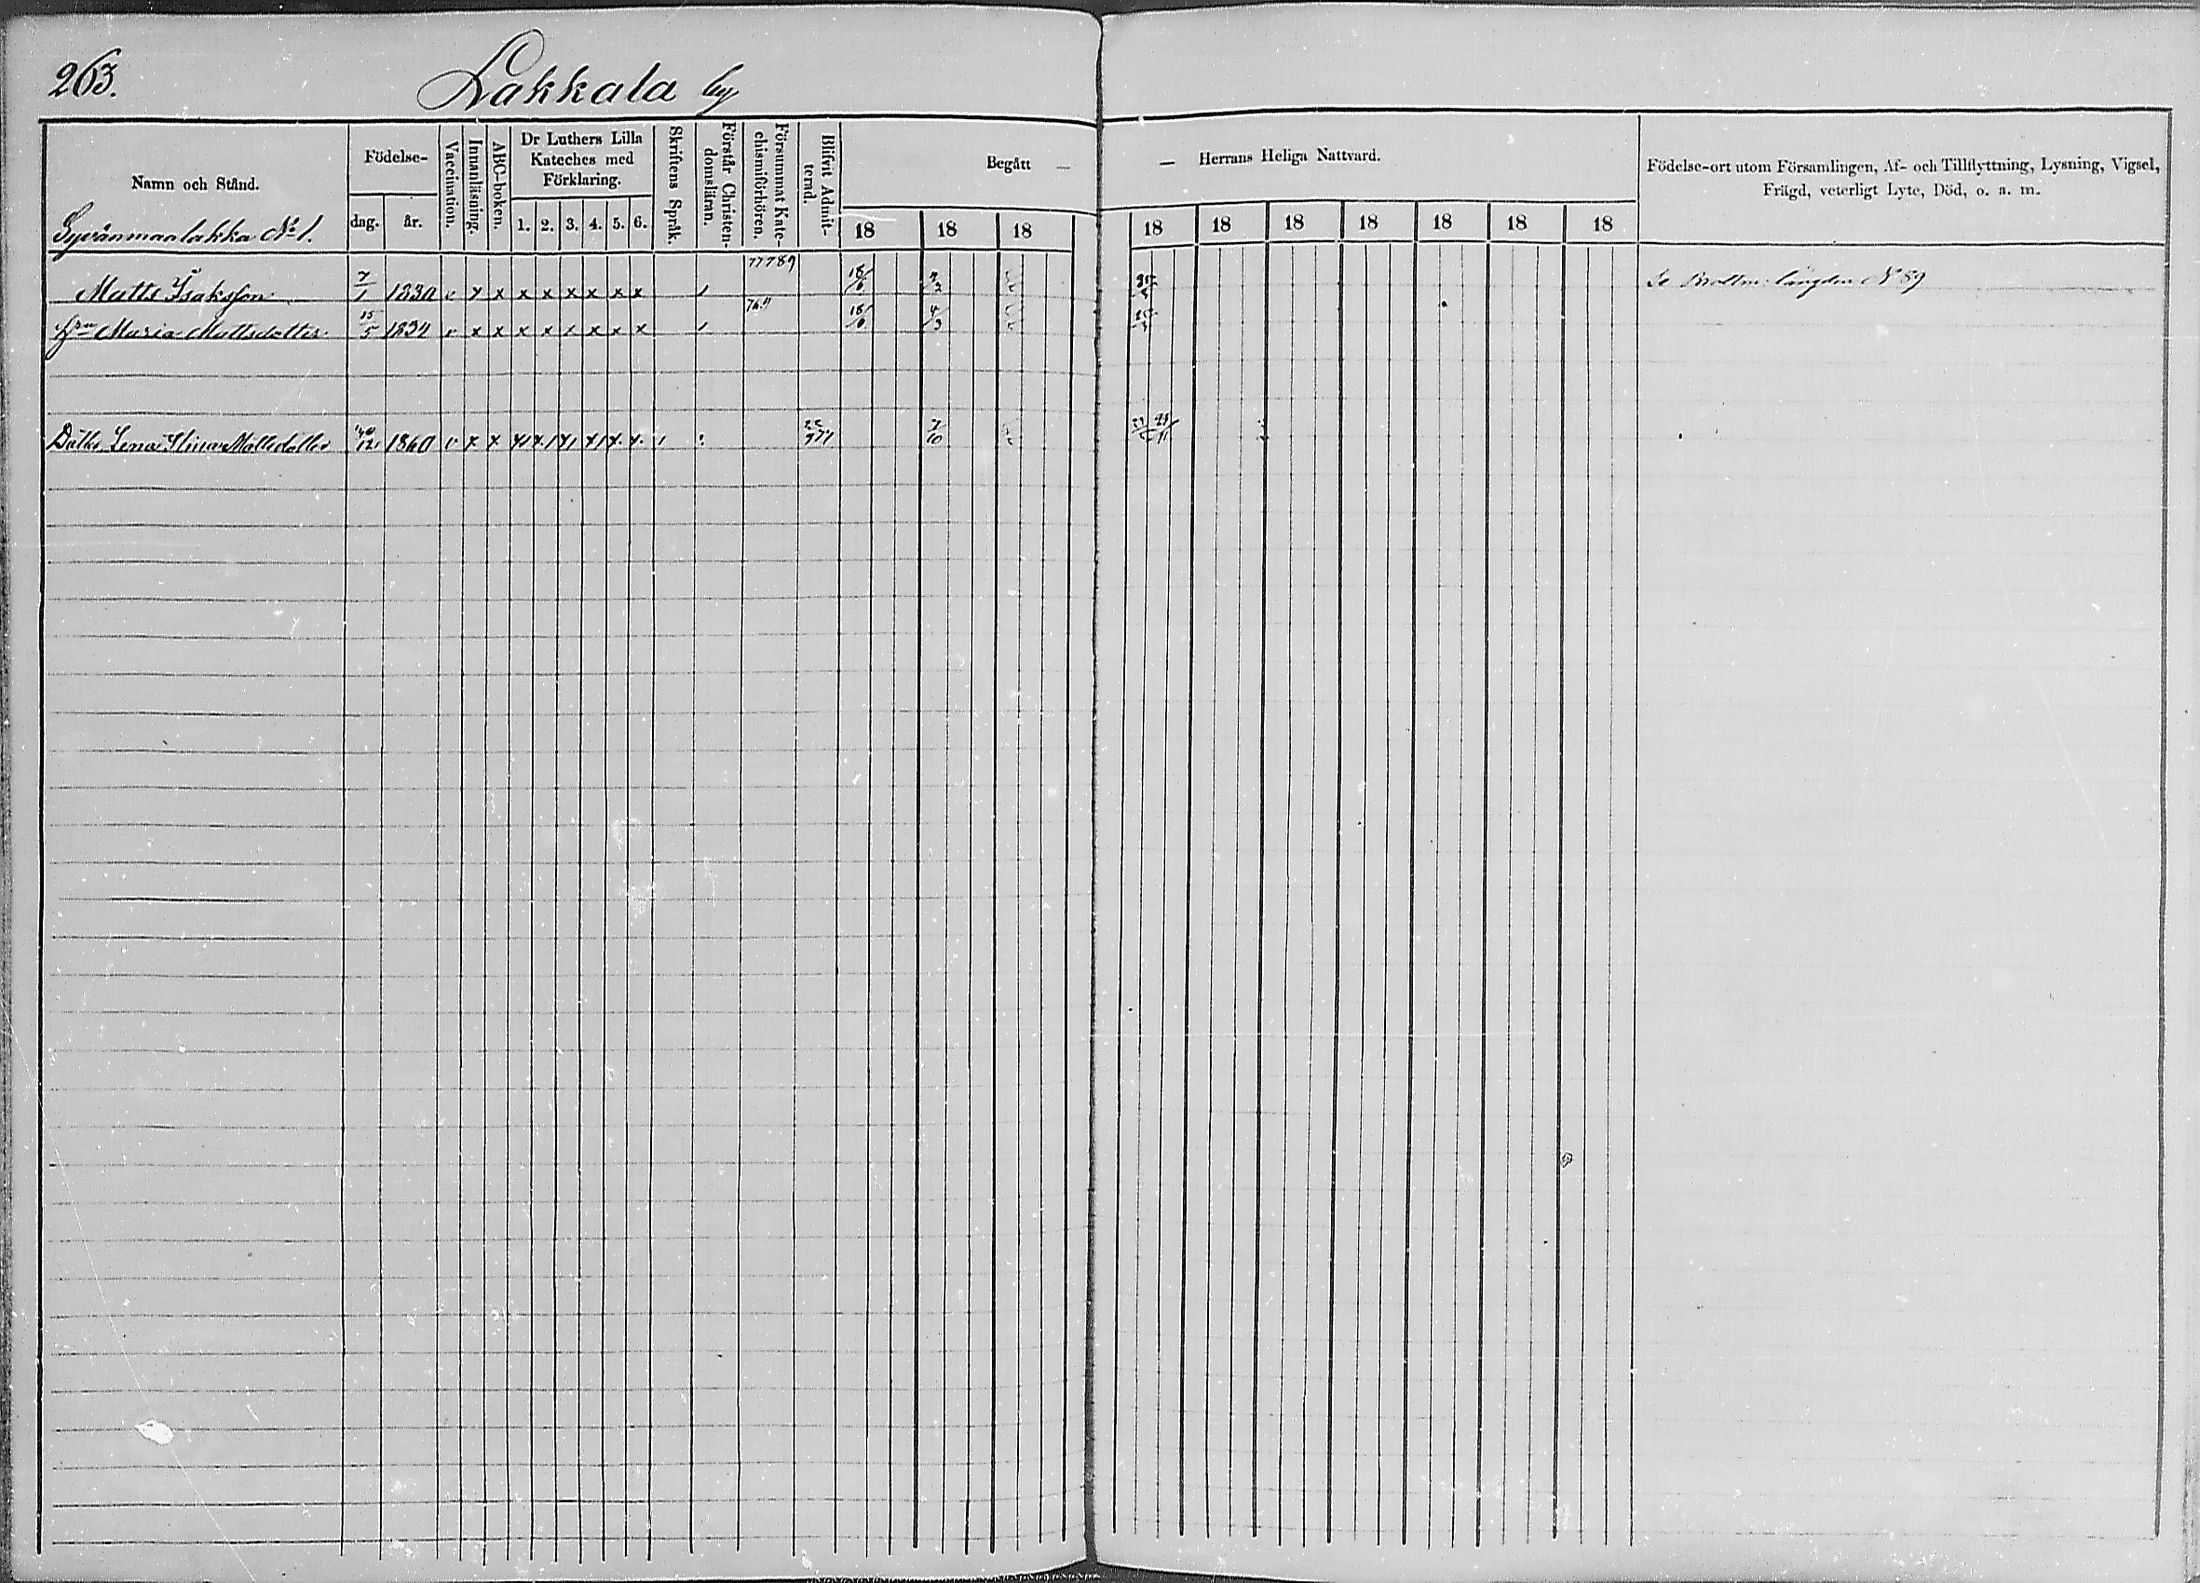 263.
Lakkala by
Namn och Stånd.
Födelse-
dag.
år.
Vaccination.
Innanläsning.
ABC-boken.
Dr Luthers Lilla
Kateches med
Förklaring.
1. 2. 3. 4. 5. 6.
Skriftens Språk.
Förstår Christen-
domsläran.
Försummat Kate-
chismiförhören.
Blifvit Admit-
terad.
Begått —
— Herrans Heliga Nattvard.
18 18 18
18 18 18 18 18 18 18
Födelse-ort utom Församlingen, Af- och Tillflyttning, Lysning, Vigsel,
Frägd, veterligt Lyte, Död, o. a. m.
Syvänmaalakka No 1.
Matts Isaksson 7/1 1830 v x x x x x x x x 1 77789 18/6
längden N 89
hru Maria Mattsdotter 15/5 1834 v x x x x x x x x 1 18/6 4/3
Dottr Lena Stina Mattsdotter 12 1860 v x x 1 7/10